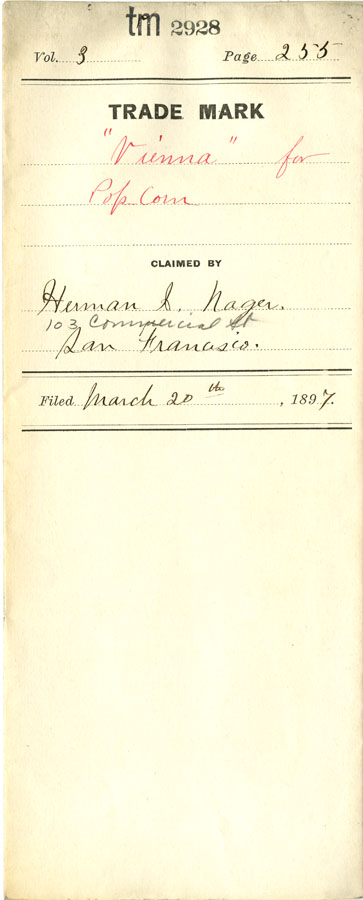 tm 2928
Vol. 3 Page 255
TRADE MARK
"Vienna" for
Pop Corn
CLAIMED BY
Herman I. Nager.
103 Commercial St
San Francisco.
Filed March 20th, 1897.